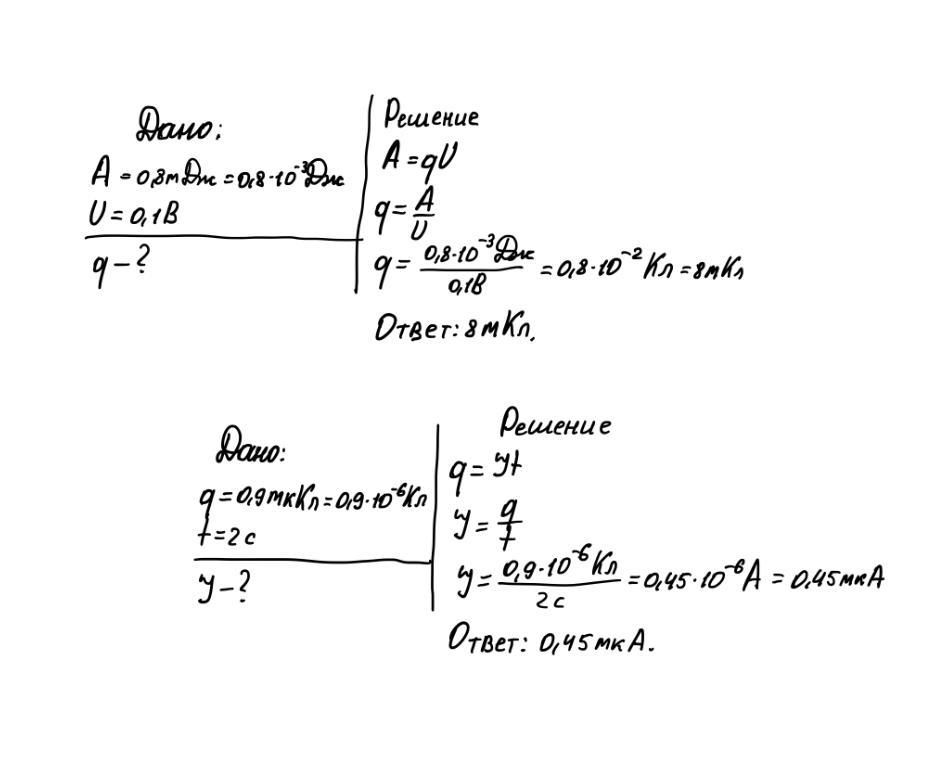 Дано:
A = 0,8 мДж = 0,8·10⁻³Дж
U = 0,1В
q – ?
Решение
A = qU
q = A/U
q = 0,8·10⁻³Дж/0,1В = 0,8·10⁻² Кл = 8мКл
Ответ: 8 мКл.
Дано:
q = 0,9мкКл = 0,9·10⁻⁶Кл
t = 2 с
У – ?
Решение
q = Уt
У = q/t
У = 0,9·10⁻⁶ Кл/2 с = 0,45·10⁻⁶ А = 0,45 мкА
Ответ: 0,45 мкА.